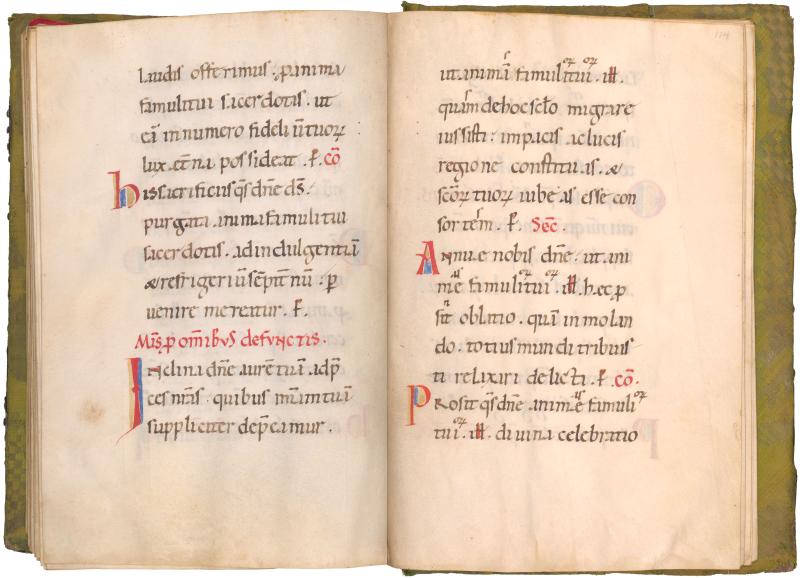 laudis offerimus. p anima
famuli tui sacerdotis. ut
eā in numero fideliū tuoꝝ
lux. etna possideat. P. cō
his sacrificiis qs dn̄e ds̄.
purgata anima famuli tui
sacerdotis. ad indulgentiā
& refrigeriū sēpit̄nū. p
venire mereatur. P.
Mis̄. p om̄ibus defunctis.
Inclina dn̄e aurē tuā. ad p̄
ces nr̄as. quibus mīam tuā
suppliciter dep̄camur.
114
ut animā famuli tui. ill.
quā de hoc sc̄lo migrare
iussisti. in pacis ac lucis
regione constituas. &
sc̄oꝝ tuoꝝ iubeas esse con
sortem. P. Sec̄.
Annue nobis dn̄e. ut ani
me famuli tui. ill. hec p
sit oblatio. quā inmolan
do. totius mundi tribuis
ti relaxari delicta. P. cō.
Prosit qs dn̄e. anime famuli
tui. ill. divina celebratio